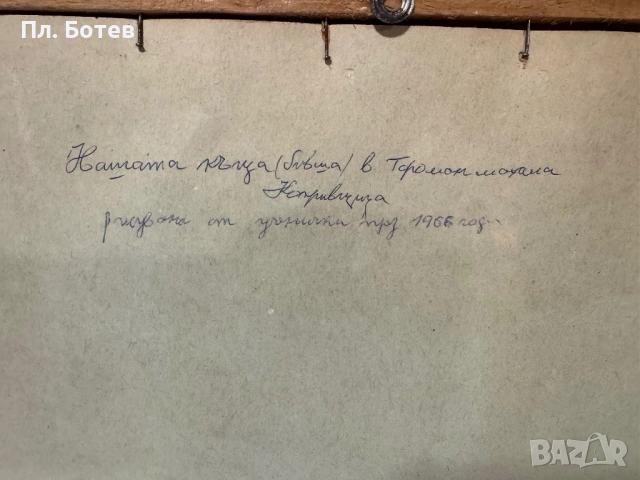 Пл. Ботев
Нашата къща (бивша) в Тороман махала
Копривщица
рисувана от ученички през 1966 год.
BAZAR